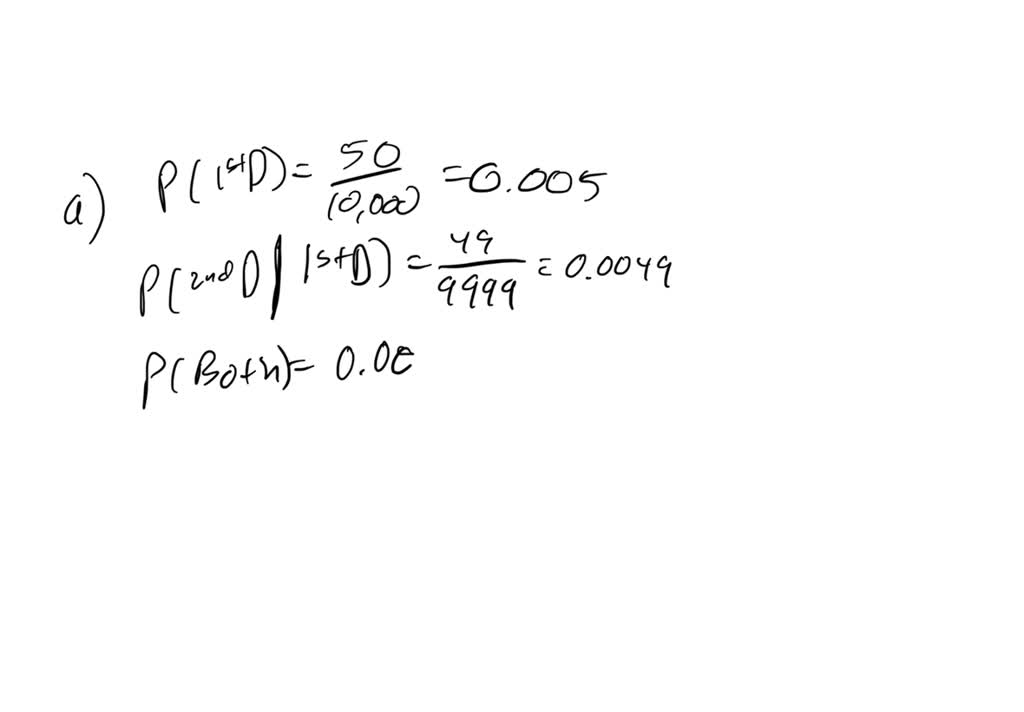 a) P(1stD) = 50/10,000 = 0.005
P(2nd D | 1stD) = 49/9999 = 0.0049
P(Both) = 0.00